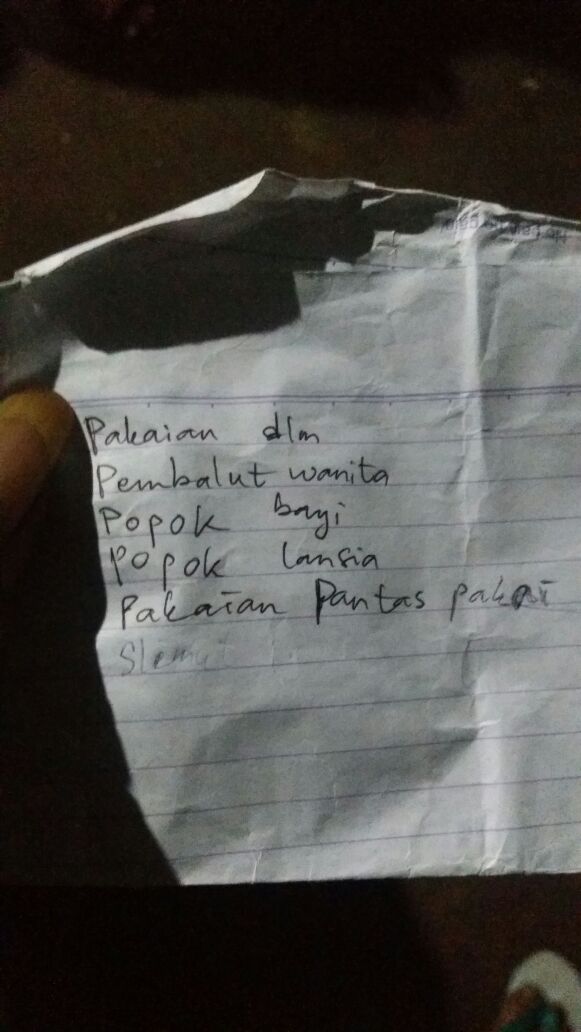 Pakaian dlm
Pembalut wanita
Popok bayi
Popok lansia
Pakaian Pantas pakai
Slemut